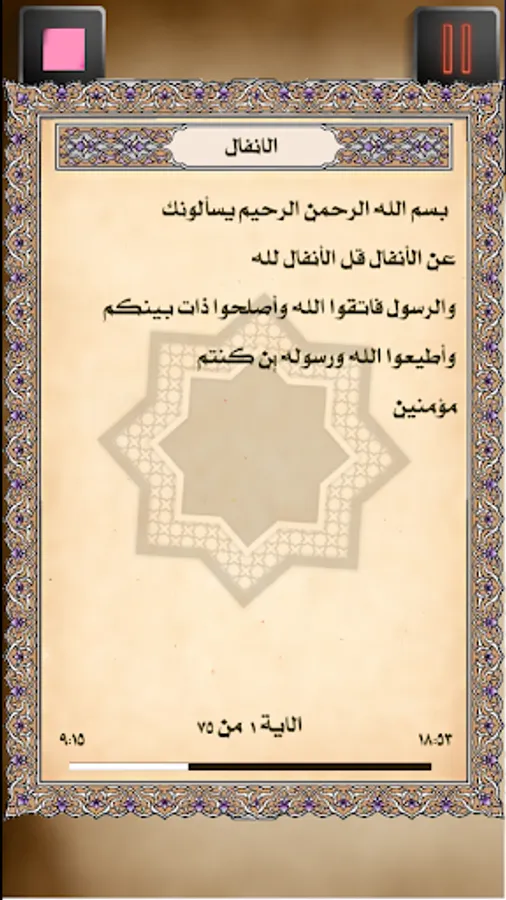 الانفال
بسم الله الرحمن الرحيم يسألونك
عن الأنفال قل الأنفال لله
والرسول فاتقوا الله وأصلحوا ذات بينكم
وأطيعوا الله ورسوله إن كنتم
مؤمنين
الاية ١ من ٧٥
٩:١٥
١٨:٥٣